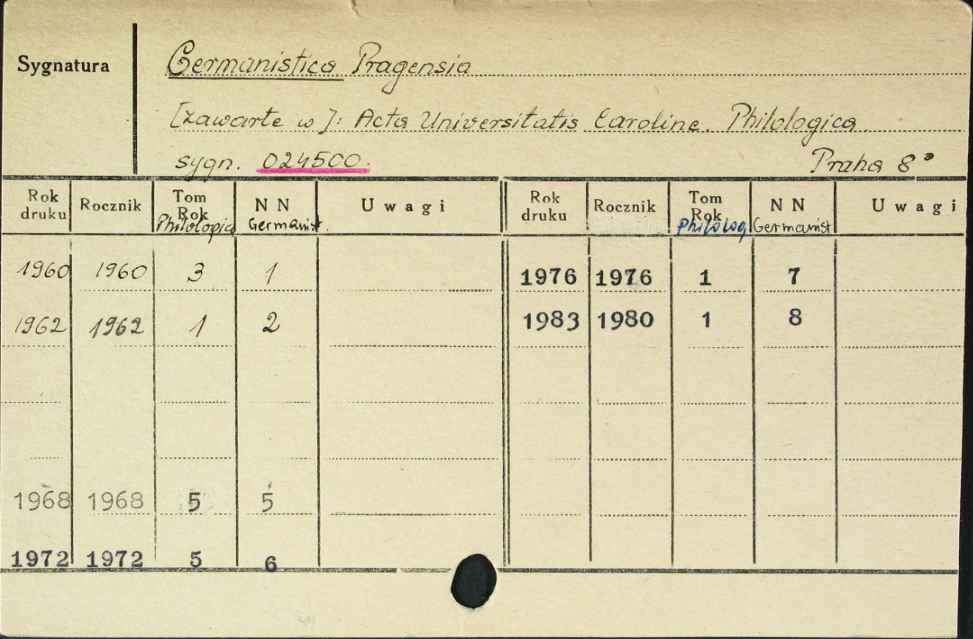 Sygnatura
Germanistica Pragensia
[zawarte w]: Acta Universitatis Caroline. Philologica
sygn. 024500. Praha 8°
Rok druku Rocznik Tom Rok Philologia N N Germanist. Uwagi
1960 1960 3 1
1962 1962 1 2
1968 1968 5 5
1972 1972 5 6
Rok druku Rocznik Tom Rok Philolog. N N Germanist Uwagi
1976 1976 1 7
1983 1980 1 8